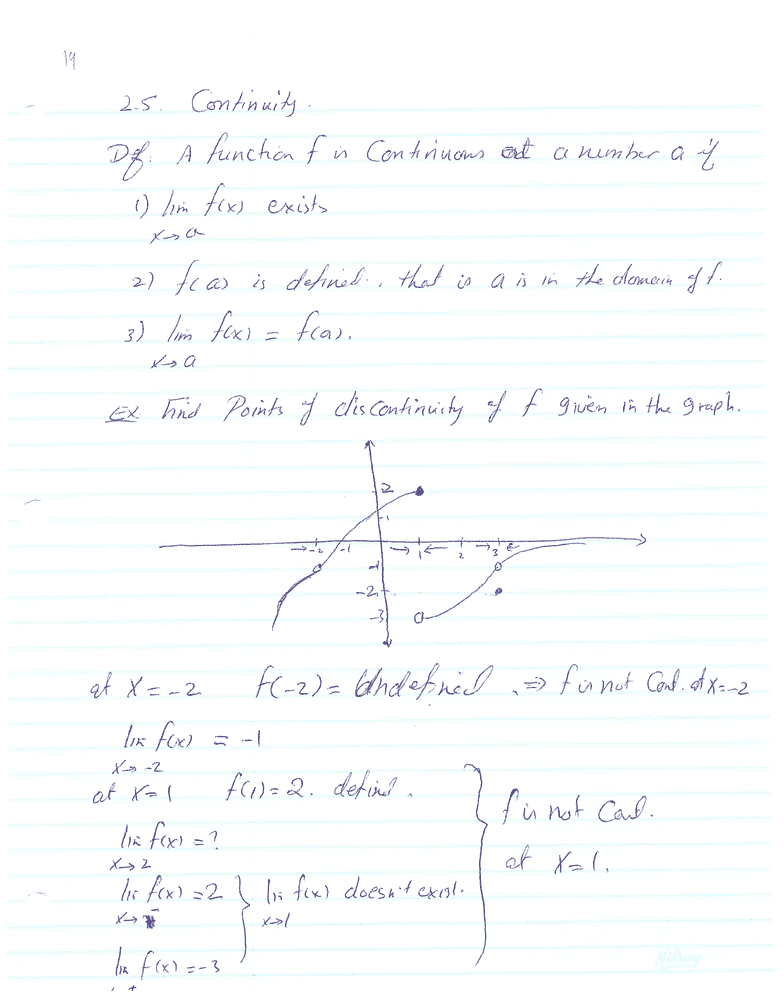 19
2.5. Continuity.
Def. A function f is Continuous at a number a if
1) lim f(x) exists
x→a
2) f(a) is defined, that is a is in the domain of f.
3) lim f(x) = f(a).
x→a
Ex Find Points of discontinuity of f given in the graph.
2
1
→ -2 -1 → 1 ← 2 → 3 ←
-1
-2
-3
at X = -2 f(-2) = Undefined. ⇒ f is not Cont. at X=-2
lim f(x) = -1
x→-2
at X=1 f(1)=2. defined.
lim f(x) = ?
x→2
lim f(x) = 2 } lim f(x) doesn't exist.
x→ x→1
lim f(x) = -3
f is not Cont.
at X=1.
Hilroy